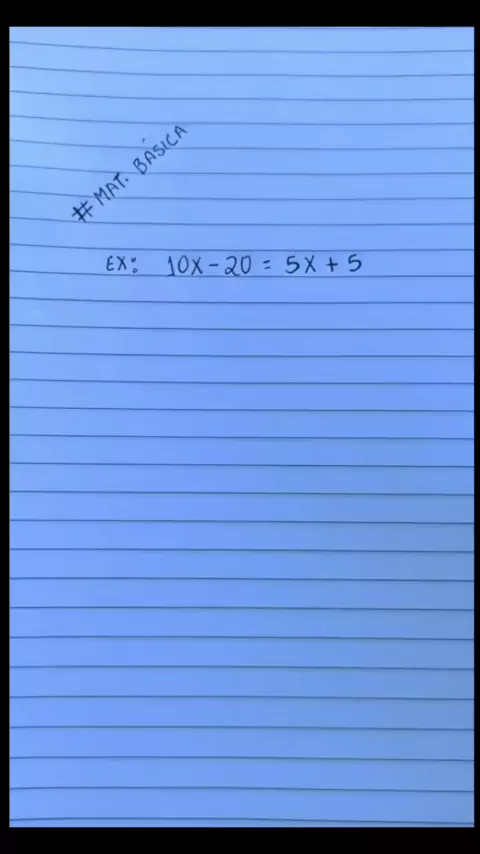 # MAT. BÁSICA
EX: 10X - 20 = 5X + 5